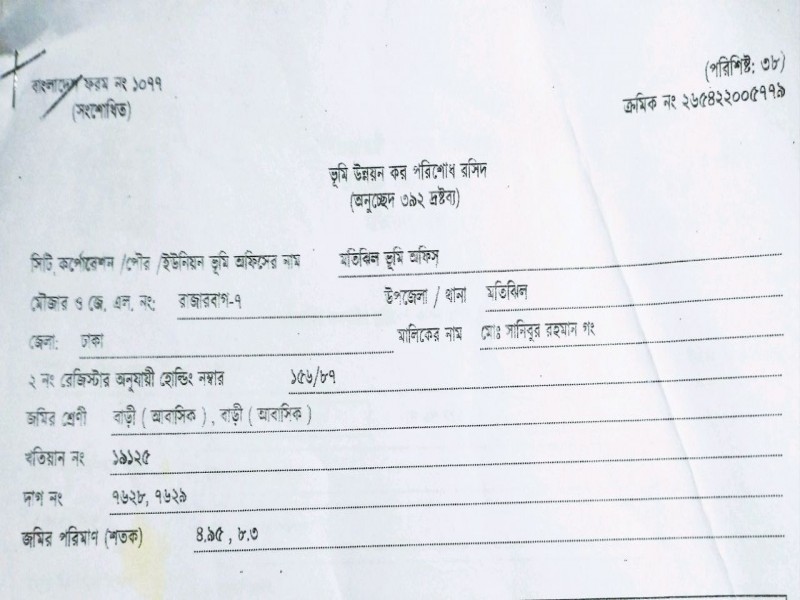 বাংলাদেশ ফরম নং ১০৭৭
(সংশোধিত)
(পরিশিষ্ট: ৩৮)
ক্রমিক নং ২৬৫৪২২০০৫৭৭৯
ভূমি উন্নয়ন কর পরিশোধ রসিদ
(অনুচ্ছেদ ৩৯২ দ্রষ্টব্য)
সিটি কর্পোরেশন /পৌর /ইউনিয়ন ভূমি অফিসের নাম মতিঝিল ভূমি অফিস
মৌজার ও জে. এল. নং: রাজারবাগ-৭ উপজেলা / থানা মতিঝিল
জেলা: ঢাকা মালিকের নাম মোঃ সানিবুর রহমান গং
২ নং রেজিস্টার অনুযায়ী হোল্ডিং নম্বর ১৫৬/৮৭
জমির শ্রেণী বাড়ী ( আবাসিক ) , বাড়ী ( আবাসিক )
খতিয়ান নং ১৯১২৫
দাগ নং ৭৬২৮, ৭৬২৯
জমির পরিমাণ (শতক) ৪.৯৫ , ৮.৩